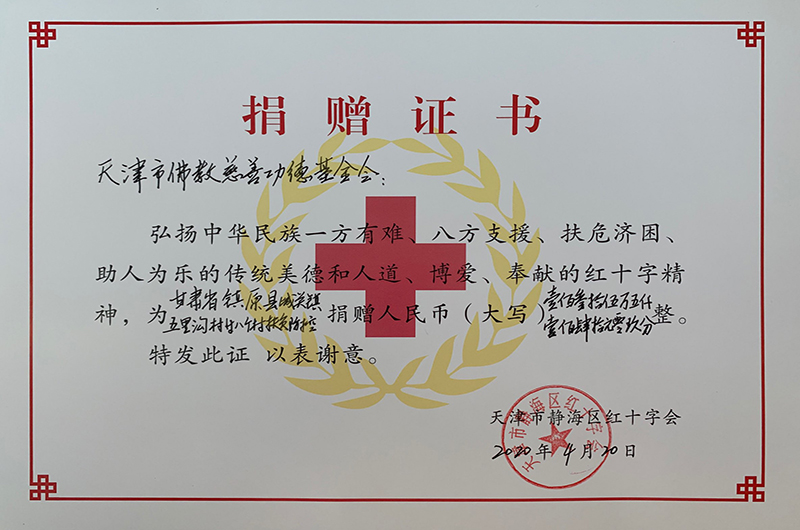 捐赠证书
天津市佛教慈善功德基金会：
弘扬中华民族一方有难、八方支援、扶危济困、
助人为乐的传统美德和人道、博爱、奉献的红十字精
神，为甘肃省镇原县城关镇 捐赠人民币（大写）壹佰叁拾伍万伍仟 整。
五里沟村 扶贫 壹佰肆拾元零玖分
特发此证 以表谢意。
天津市静海区红十字会
2020年4月20日
天津市静海区红十字会